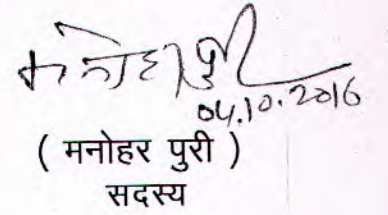 मनोहर पुरी
04.10.2016
( मनोहर पुरी )
सदस्य